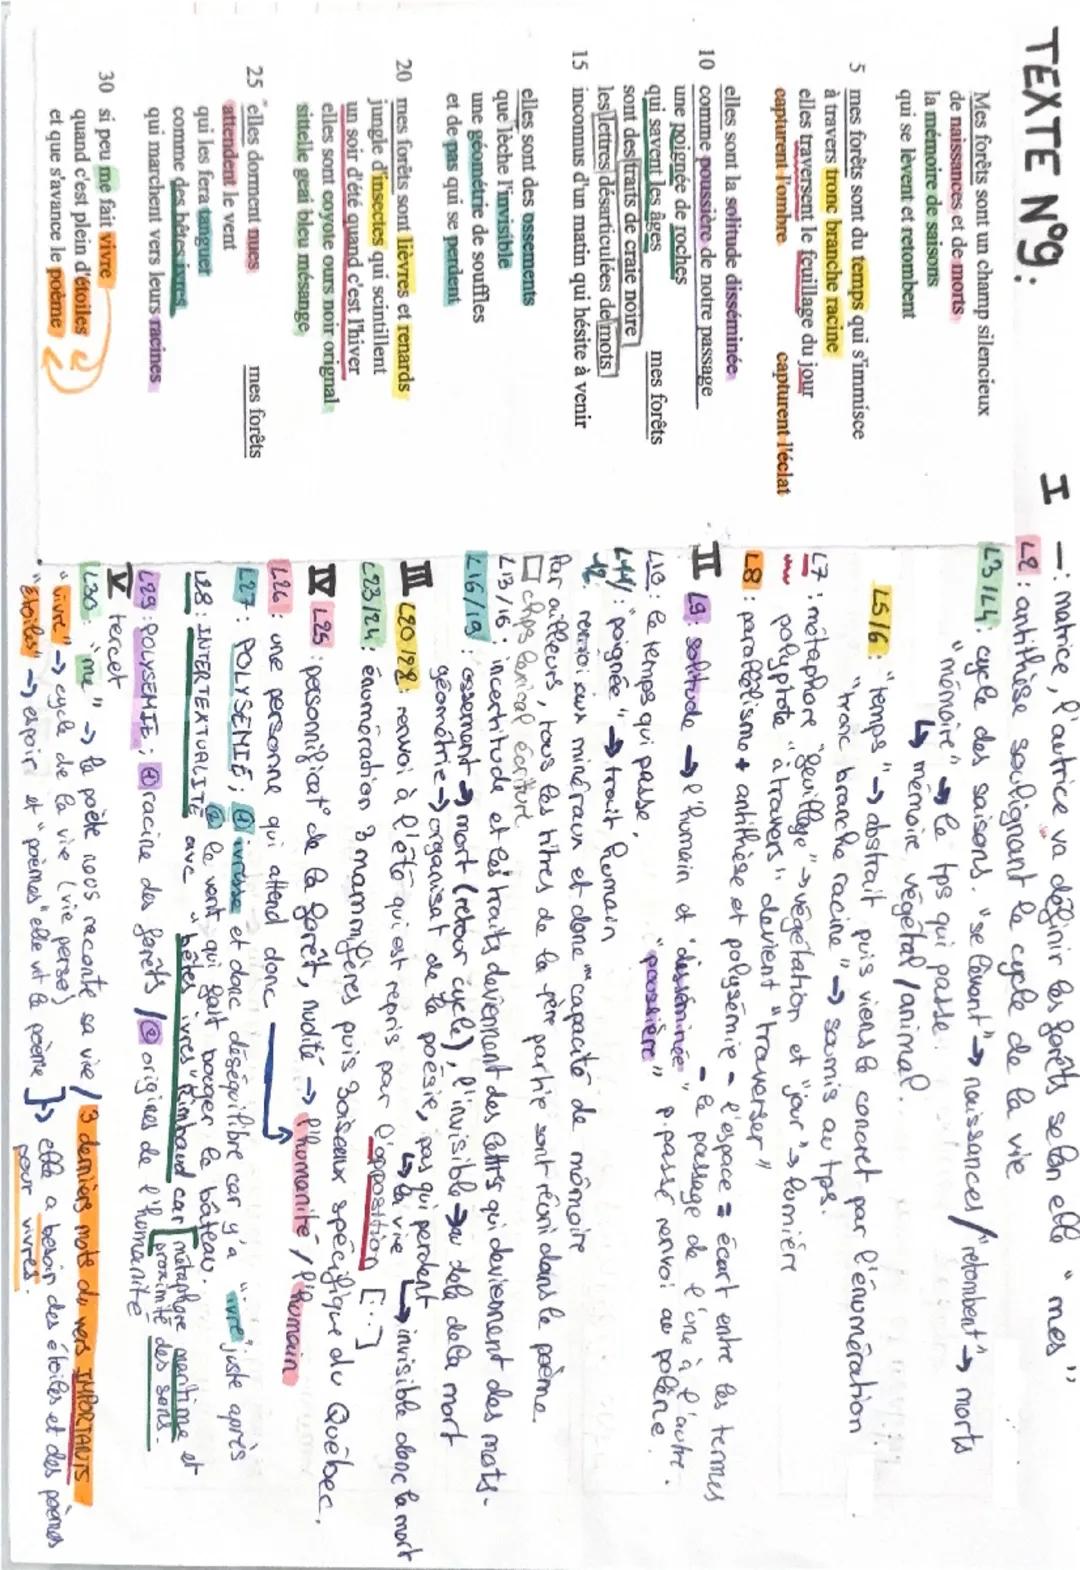 TEXTE N°9:
Mes forêts sont un champ silencieux
de naissances et de morts
la mémoire de saisons
qui se lèvent et retombent
5 mes forêts sont du temps qui s'immisce
à travers tronc branche racine
elles traversent le feuillage du jour
capturent l'ombre capturent l'éclat
elles sont la solitude disséminée
10 comme poussière de notre passage
une poignée de roches
qui savent les âges mes forêts
sont des traits de craie noire
les lettres désarticulées de mots
15 inconnus d'un matin qui hésite à venir
elles sont des ossements
que lèche l'invisible
une géométrie de souffles
et de pas qui se perdent
20 mes forêts sont lièvres et renards
jungle d'insectes qui scintillent
un soir d'été quand c'est l'hiver
elles sont coyote ours noir orignal
sittelle geai bleu mésange
mes forêts
25 elles dorment nues
attendent le vent
qui les fera tanguer
comme des bêtes ivres
qui marchent vers leurs racines
30 si peu me fait vivre
quand c'est plein d'étoiles
et que s'avance le poème
I —: matrice, l'autrice va définir les forêts selon elle "mes"
L2: antithèse soulignant le cycle de la vie
L3/L4: cycle des saisons. "se lèvent" → naissances / "retombent" → morts
"mémoire" → le tps qui passe.
↳ mémoire végétal/animal.
L5/6: "temps" → abstrait puis viens le concret par l'énumération
"tronc branche racine" → soumis au tps.
L7: métaphore "feuillage" → végétation et "jour" → lumière
polyptote "à travers" devient "traverser"
L8: parallélisme + antithèse et polysémie - l'espace = écart entre les termes
- le passage de l'une à l'autre.
II L9: solitude → l'humain et "disséminée"
L10: le temps qui passe, "poussière" p. passé renvoi au pollène.
L11/: "poignée" → trait humain
12 renvoi aux minéraux et donc capacité de mémoire
Par ailleurs, tous les titres de la 1ère partie sont réuni dans le poème.
□ chps lexical écriture
L13/16: incertitude et les traits deviennent des lettres qui deviennent des mots.
L16/19: ossement → mort (retour cycle), l'invisible → au delà de la mort
géométrie → organisat° de la poésie, pas qui perdent
III L20/28: renvoi à l'été qui est repris par l'opposition [...]
↳ la vie ↳ invisible donc la mort
L23/24: énumération 3 mammifères puis 3 oiseaux spécifique du Québec.
IV L25: personnificat° de la forêt, nudité → l'humanité / l'humain
L26: une personne qui attend donc
L27: POLYSEMIE; ① ivresse et donc déséquilibre car y'a "ivre" juste après
② le vent qui fait bouger le bâteau.
L28: INTERTEXTUALITÉ avec "bêtes ivres" Rimbaud car [métaphore maritime et
proximité des sons.
L29: POLYSEMIE; ① racine des forêts / ② origines de l'humanité
V tercet
L30: "me" → la poète nous raconte sa vie / 3 derniers mots du vers IMPORTANTS
"vivre" → cycle de la vie (vie perso)
"étoiles" → espoir et "poèmes" elle vit le poème } → elle a besoin des étoiles et des poèmes
pour vivres.